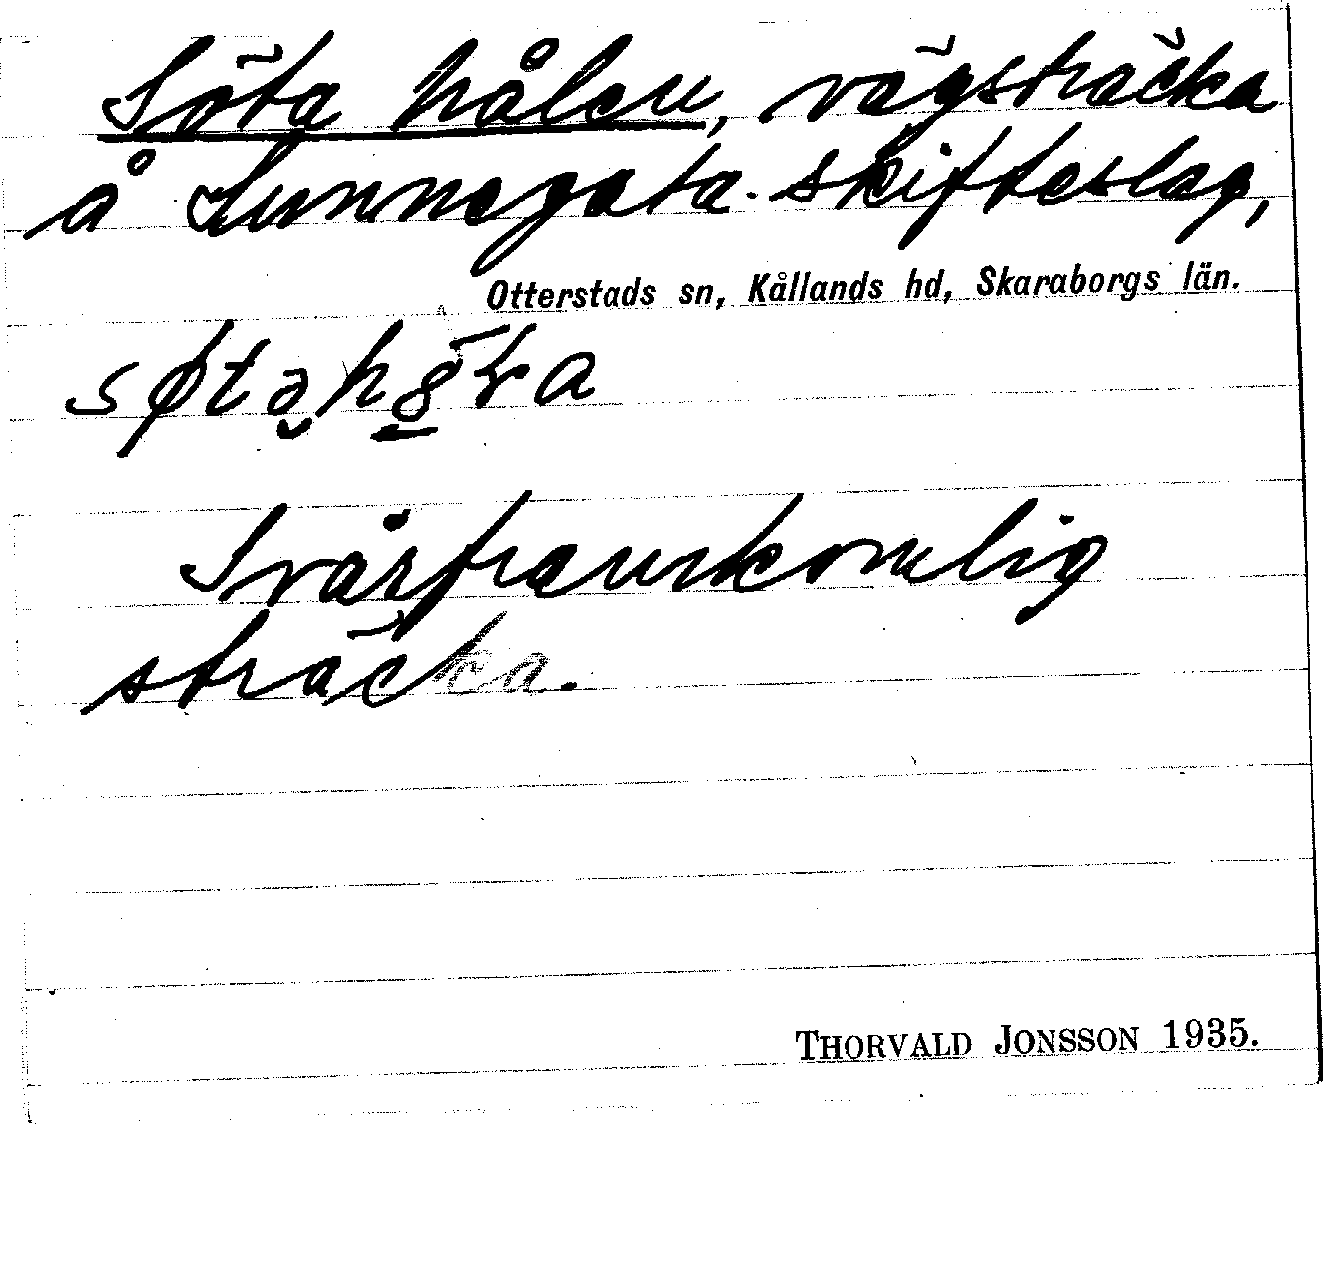 Söta hålen, vägsträcka
å Sunnegata skifteslag,
Otterstads sn, Kållands hd, Skaraborgs län.
Svårframkomlig
sträcka.
THORVALD JONSSON 1935.